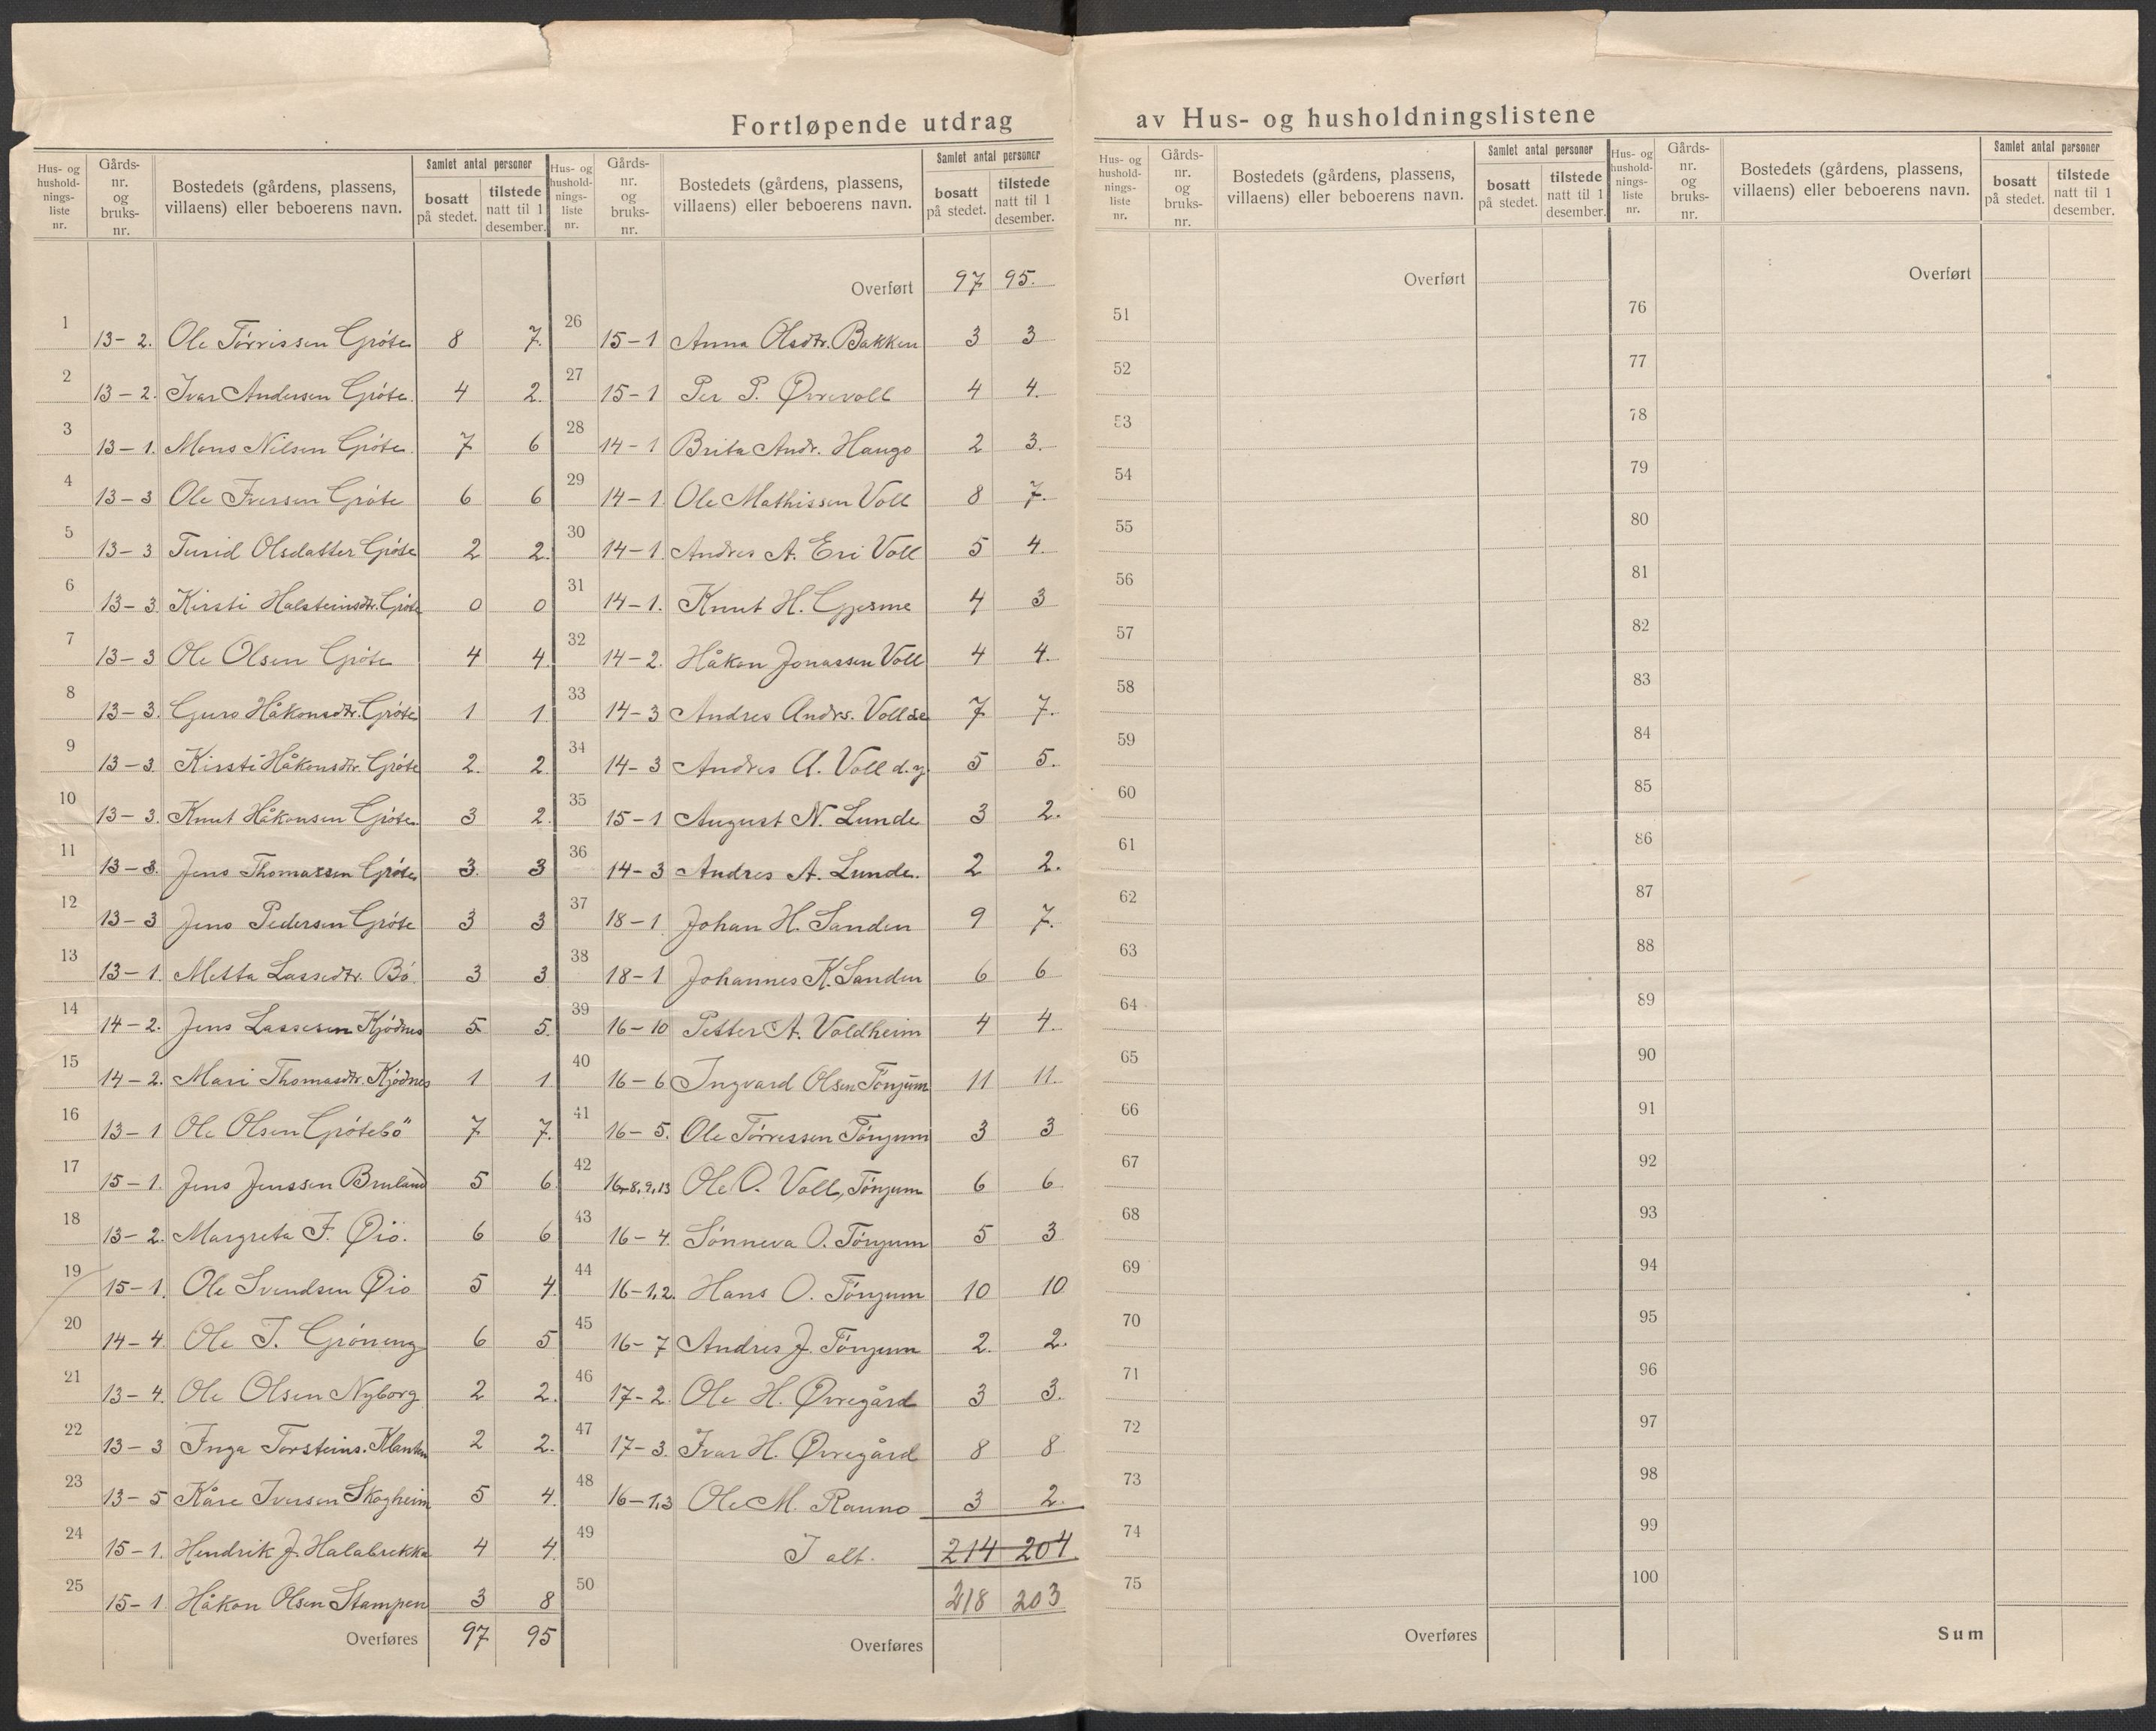 Fortløpende utdrag av Hus- og husholdningslistene
Hus- og husholdningsliste nr. | Gårds-nr. og bruks-nr. | Bostedets (gårdens, plassens, villaens) eller beboerens navn. | Samlet antal personer bosatt på stedet. | tilstede natt til 1 desember.
1 | 13-2. | Ole Tørrissen Grøte | 8 | 7.
2 | 13-2. | Ivar Andersen Grøte. | 4 | 2.
3 | 13-1. | Mons Nilsen Grøte. | 7 | 6
4 | 13-3 | Ole Iversen Grøte | 6 | 6
5 | 13-3 | Turid Olsdatter Grøte | 2 | 2.
6 | 13-3. | Kirsti Halsteinsdtr. Grøte | 0 | 0
7 | 13-3 | Ole Olsen Grøte | 4 | 4
8 | 13-3. | Guro Håkonsdtr. Grøte | 1 | 1
9 | 13-3. | Kirsti Håkonsdtr. Grøte | 2. | 2
10 | 13-3. | Knut Håkonsen Grøte. | 3 | 2.
11 | 13-3. | Jens Thomassen Grøte | 3. | 3
12 | 13-3 | Jens Pedersen Grøte | 3 | 3
13 | 13-1. | Metta Lassedtr. Bø. | 3 | 3
14 | 14-2. | Jens Lassesen Kjødnes | 5 | 5.
15 | 14-2. | Mari Thomasdtr. Kjødnes | 1 | 1
16 | 13-1 | Ole Olsen Grøtebö | 7 | 7.
17 | 15-1. | Jens Jenssen Bruland | 5 | 6
18 | 13-2. | Margreta F. Øiö. | 6 | 6
19 | 15-1. | Ole Svendsen Øio | 5 | 4.
20 | 14-4. | Ole T. Grøneng | 6 | 5
21 | 13-4. | Ole Olsen Nyborg | 2 | 2.
22 | 13-3 | Inga Torsteins. | 2 | 2.
23 | 13-5 | Kåre Iversen Skogheim | 5 | 4.
24 | 15-1. | Hendrik J. Halabrekka | 4 | 4.
25 | 15-1. | Håkon Olsen Stampen | 3 | 8
Overføres | 97 | 95
Hus- og husholdningsliste nr. | Gårds-nr. og bruks-nr. | Bostedets (gårdens, plassens, villaens) eller beboerens navn. | Samlet antal personer bosatt på stedet. | tilstede natt til 1 desember.
Overført | 97 | 95.
26 | 15-1 | Anna Olsdtr. Bakken | 3 | 3
27 | 15-1 | Per P. Øvrevoll | 4 | 4.
28 | 14-1 | Brita Andr. Haugo | 2 | 3.
29 | 14-1. | Ole Mathissen Voll | 8 | 7.
30 | 14-1. | Andres A. Eri Voll | 5 | 4.
31 | 14-1. | Knut H. Gjesme | 4 | 3
32 | 14-2. | Håkon Jonassen Voll | 4 | 4.
33 | 14-3 | Andres Andrs. Voll d.e | 7 | 7.
34 | 14-3 | Andres A. Voll d.y. | 5 | 5.
35 | 15-1 | August N. Lunde | 3 | 2.
36 | 14-3 | Andres A. Lunde. | 2 | 2.
37 | 18-1 | Johan H. Sanden | 9 | 7.
38 | 18-1 | Johannes K. Sanden | 6 | 6
39 | 16-10 | Petter A. Voldheim | 4 | 4.
40 | 16-6 | Ingvard Olsen Tønjum | 11 | 11.
41 | 16-5. | Ole Tørressen Tønjum | 3 | 3
42 | 16-8,9,13 | Ole O. Voll, Tønjum | 6 | 6
43 | 16-4. | Sønneva O. Tønjum | 5 | 3
44 | 16-1,2. | Hans O. Tønjum | 10 | 10
45 | 16-7 | Andres J. Tønjum | 2. | 2.
46 | 17-2. | Ole H. Øvregård | 3 | 3.
47 | 17-3. | Ivar H. Øvregård | 8 | 8
48 | 16-1,3 | Ole M. Rauno | 3 | 2.
49 | I alt. | 214 | 204
50 | 218 | 203
Overføres
Hus- og husholdningsliste nr. | Gårds-nr. og bruks-nr. | Bostedets (gårdens, plassens, villaens) eller beboerens navn. | Samlet antal personer bosatt på stedet. | tilstede natt til 1 desember.
Overført
51
52
53
54
55
56
57
58
59
60
61
62
63
64
65
66
67
68
69
70
71
72
73
74
75
Overføres
Hus- og husholdningsliste nr. | Gårds-nr. og bruks-nr. | Bostedets (gårdens, plassens, villaens) eller beboerens navn. | Samlet antal personer bosatt på stedet. | tilstede natt til 1 desember.
Overført
76
77
78
79
80
81
82
83
84
85
86
87
88
89
90
91
92
93
94
95
96
97
98
99
100
Sum